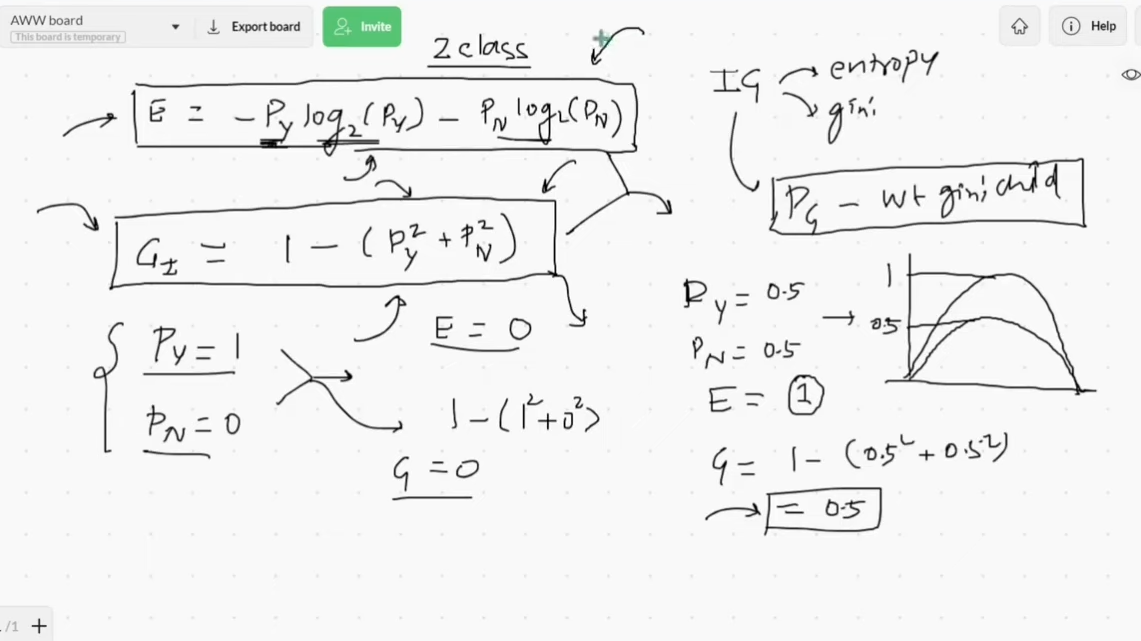 AWW board
This board is temporary
Export board
Invite
Help
2 class
E = - P_Y log_2 (P_Y) - P_N log_2 (P_N)
G_I = 1 - (P_Y^2 + P_N^2)
P_Y = 1
P_N = 0
E = 0
1 - (1^2 + 0^2)
G = 0
IG
entropy
gini
P_G - wt gini child
P_Y = 0.5
P_N = 0.5
E = 1
1
0.5
G = 1 - (0.5^2 + 0.5^2)
= 0.5
/1 +